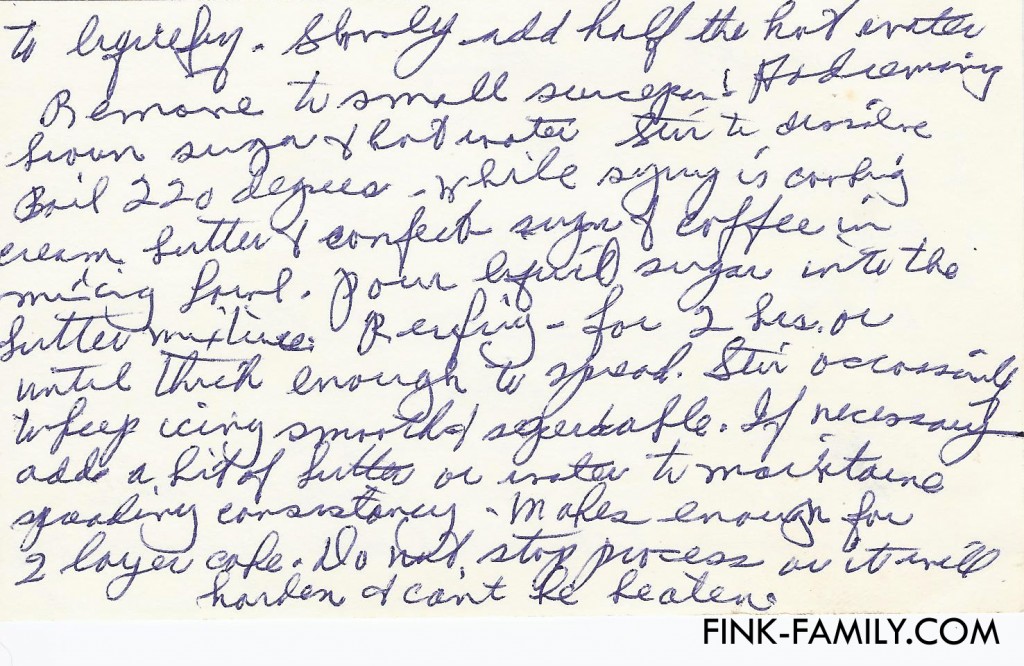 to liquefy. Slowly add half the hot water
Remove to small saucepan & Add remaing
brown sugar & hot water Stir to dissolve
Boil 220 degrees - While syrup is cooking
cream butter & confect sugar & coffee in
mixing bowl. Pour liquid sugar into the
butter mixture. Refrig - for 2 hrs. or
until thick enough to spread. Stir occassionly
to keep icing smooth & spreadable. If necessary
add a bit of butter or water to maintaine
spreading consistancy - Makes enough for
2 layer cake. Do not stop process or it will
harden & can't be beaten.
FINK-FAMILY.COM